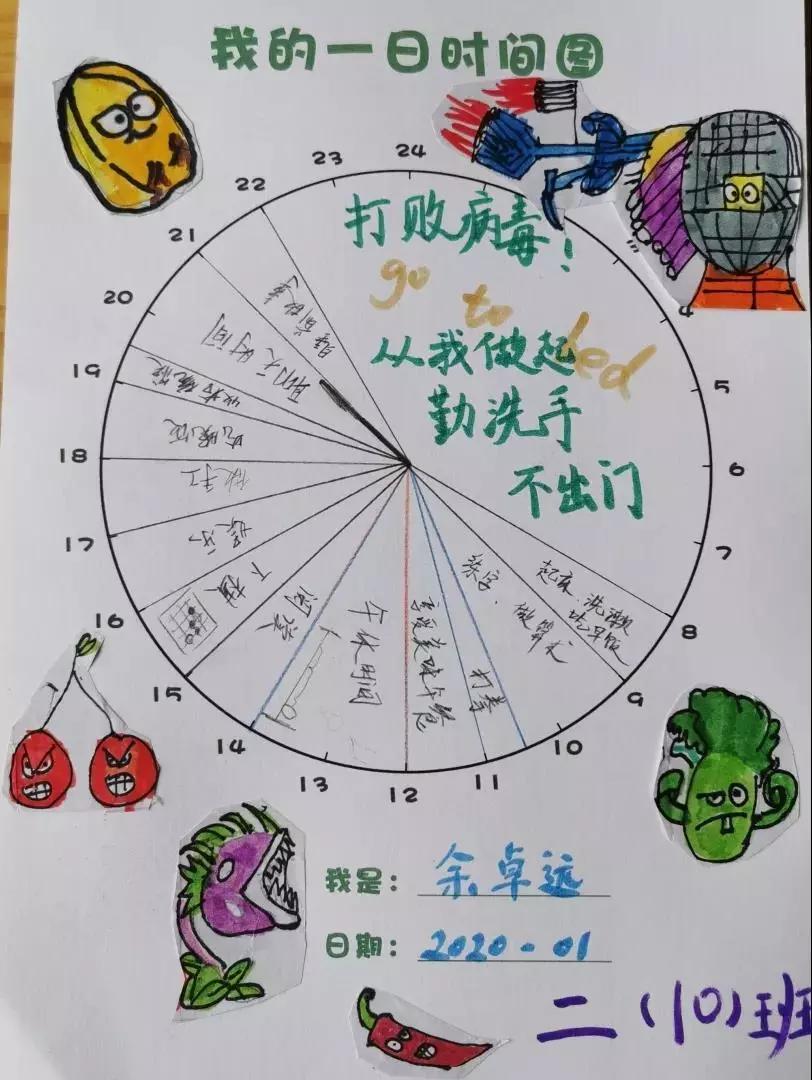 我的一日时间图
24
23
22
21
20
19
18
17
16
15
14
13
12
11
10
9
8
7
6
5
4
打败病毒！
go to bed
从我做起
勤洗手
不出门
睡前故事
聊天时间
收拾碗筷
吃晚饭
做手工
练功
下棋
阅读
午休时间
享受美味午餐
打拳
练字、做算术
起床、洗漱
吃早饭
我是：余卓远
日期：2020-01
二（10）班